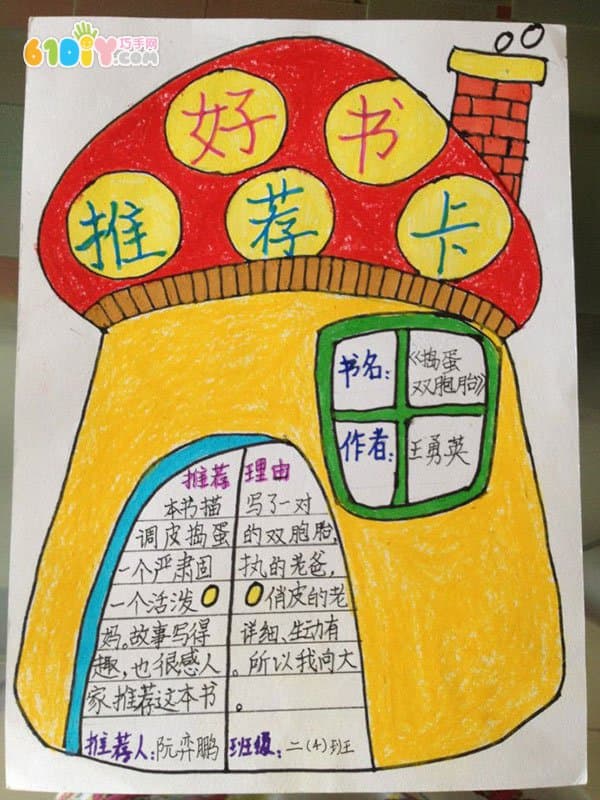 61DIY巧手网
.com
好书
推荐卡
书名：《捣蛋
双胞胎》
作者：王勇英
推荐理由
本书描写了一对
调皮捣蛋的双胞胎，
一个严肃固执的老爸，
一个活泼俏皮的老
妈。故事写得详细、生动有
趣，也很感人。所以我向大
家推荐这本书。
推荐人：阮弈鹏 班级：二（4）班